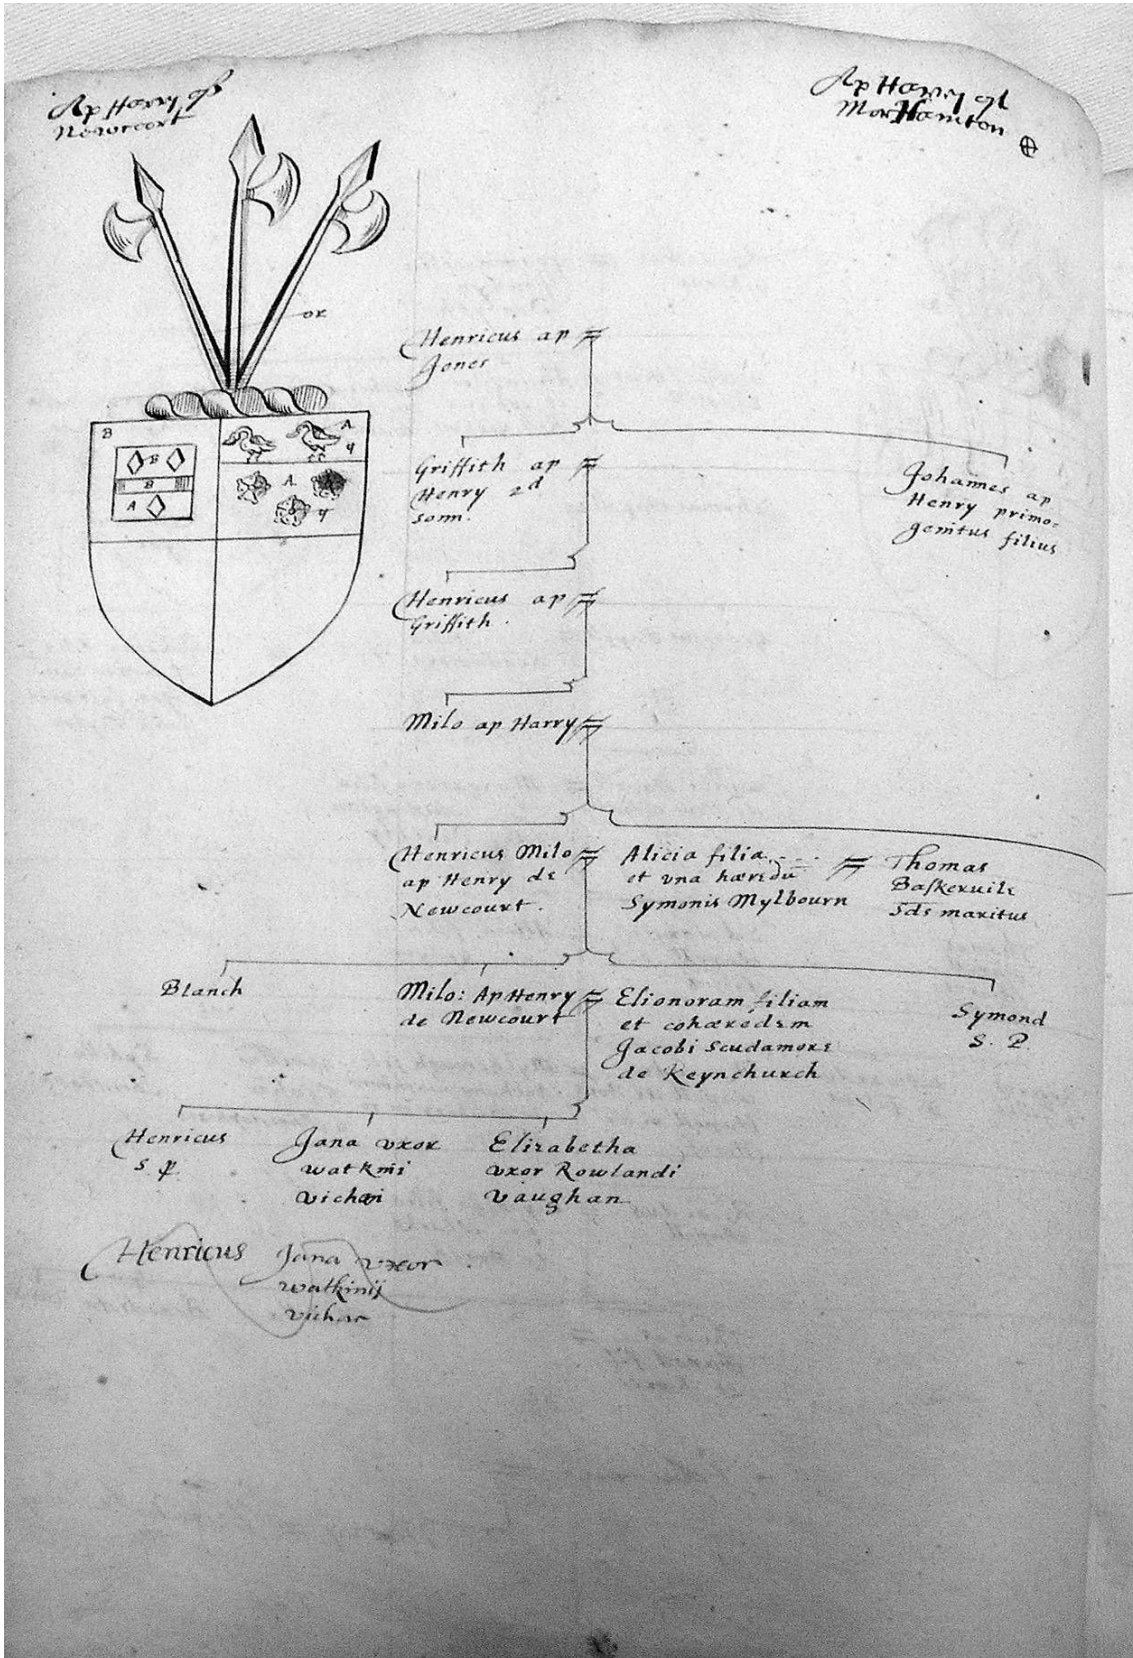 Ap Harry of
Newcort
Ap Harry of
Mor Hamton
or
B
A
B
B
A
A
Henricus ap
Jones
Griffith ap
Henry 2d
sonn.
Johannes ap
Henry primo=
genitus filius
Henricus ap
Griffith.
Milo ap Harry
Henricus Milo
ap Henry de
Newcourt.
Alicia filia....
et vna hæredū
Symonis Mylbourn
Thomas
Baskervile
maritus
Blanch
Milo: Ap Henry
de Newcourt
Elionoram filiam
et cohæredem
Jacobi Scudamore
de Keynchurch
Symond
S. P.
Henricus
s p.
Jana vxor
watkini
vichani
Elizabetha
vxor Rowlandi
vaughan
Henricus
Jana vxor
watkinij